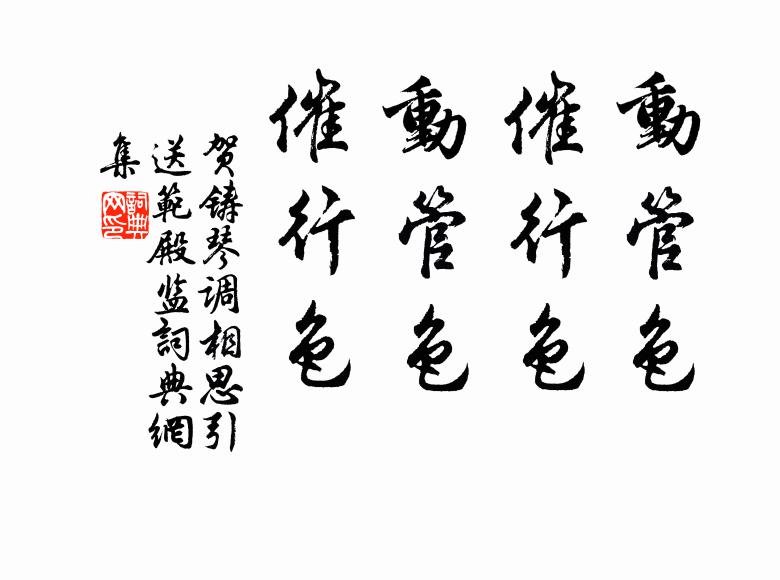 動管色
催行色
動管色
催行色
贺鑄琴调相思引
送範殿监詞典網
集
詞典
网印